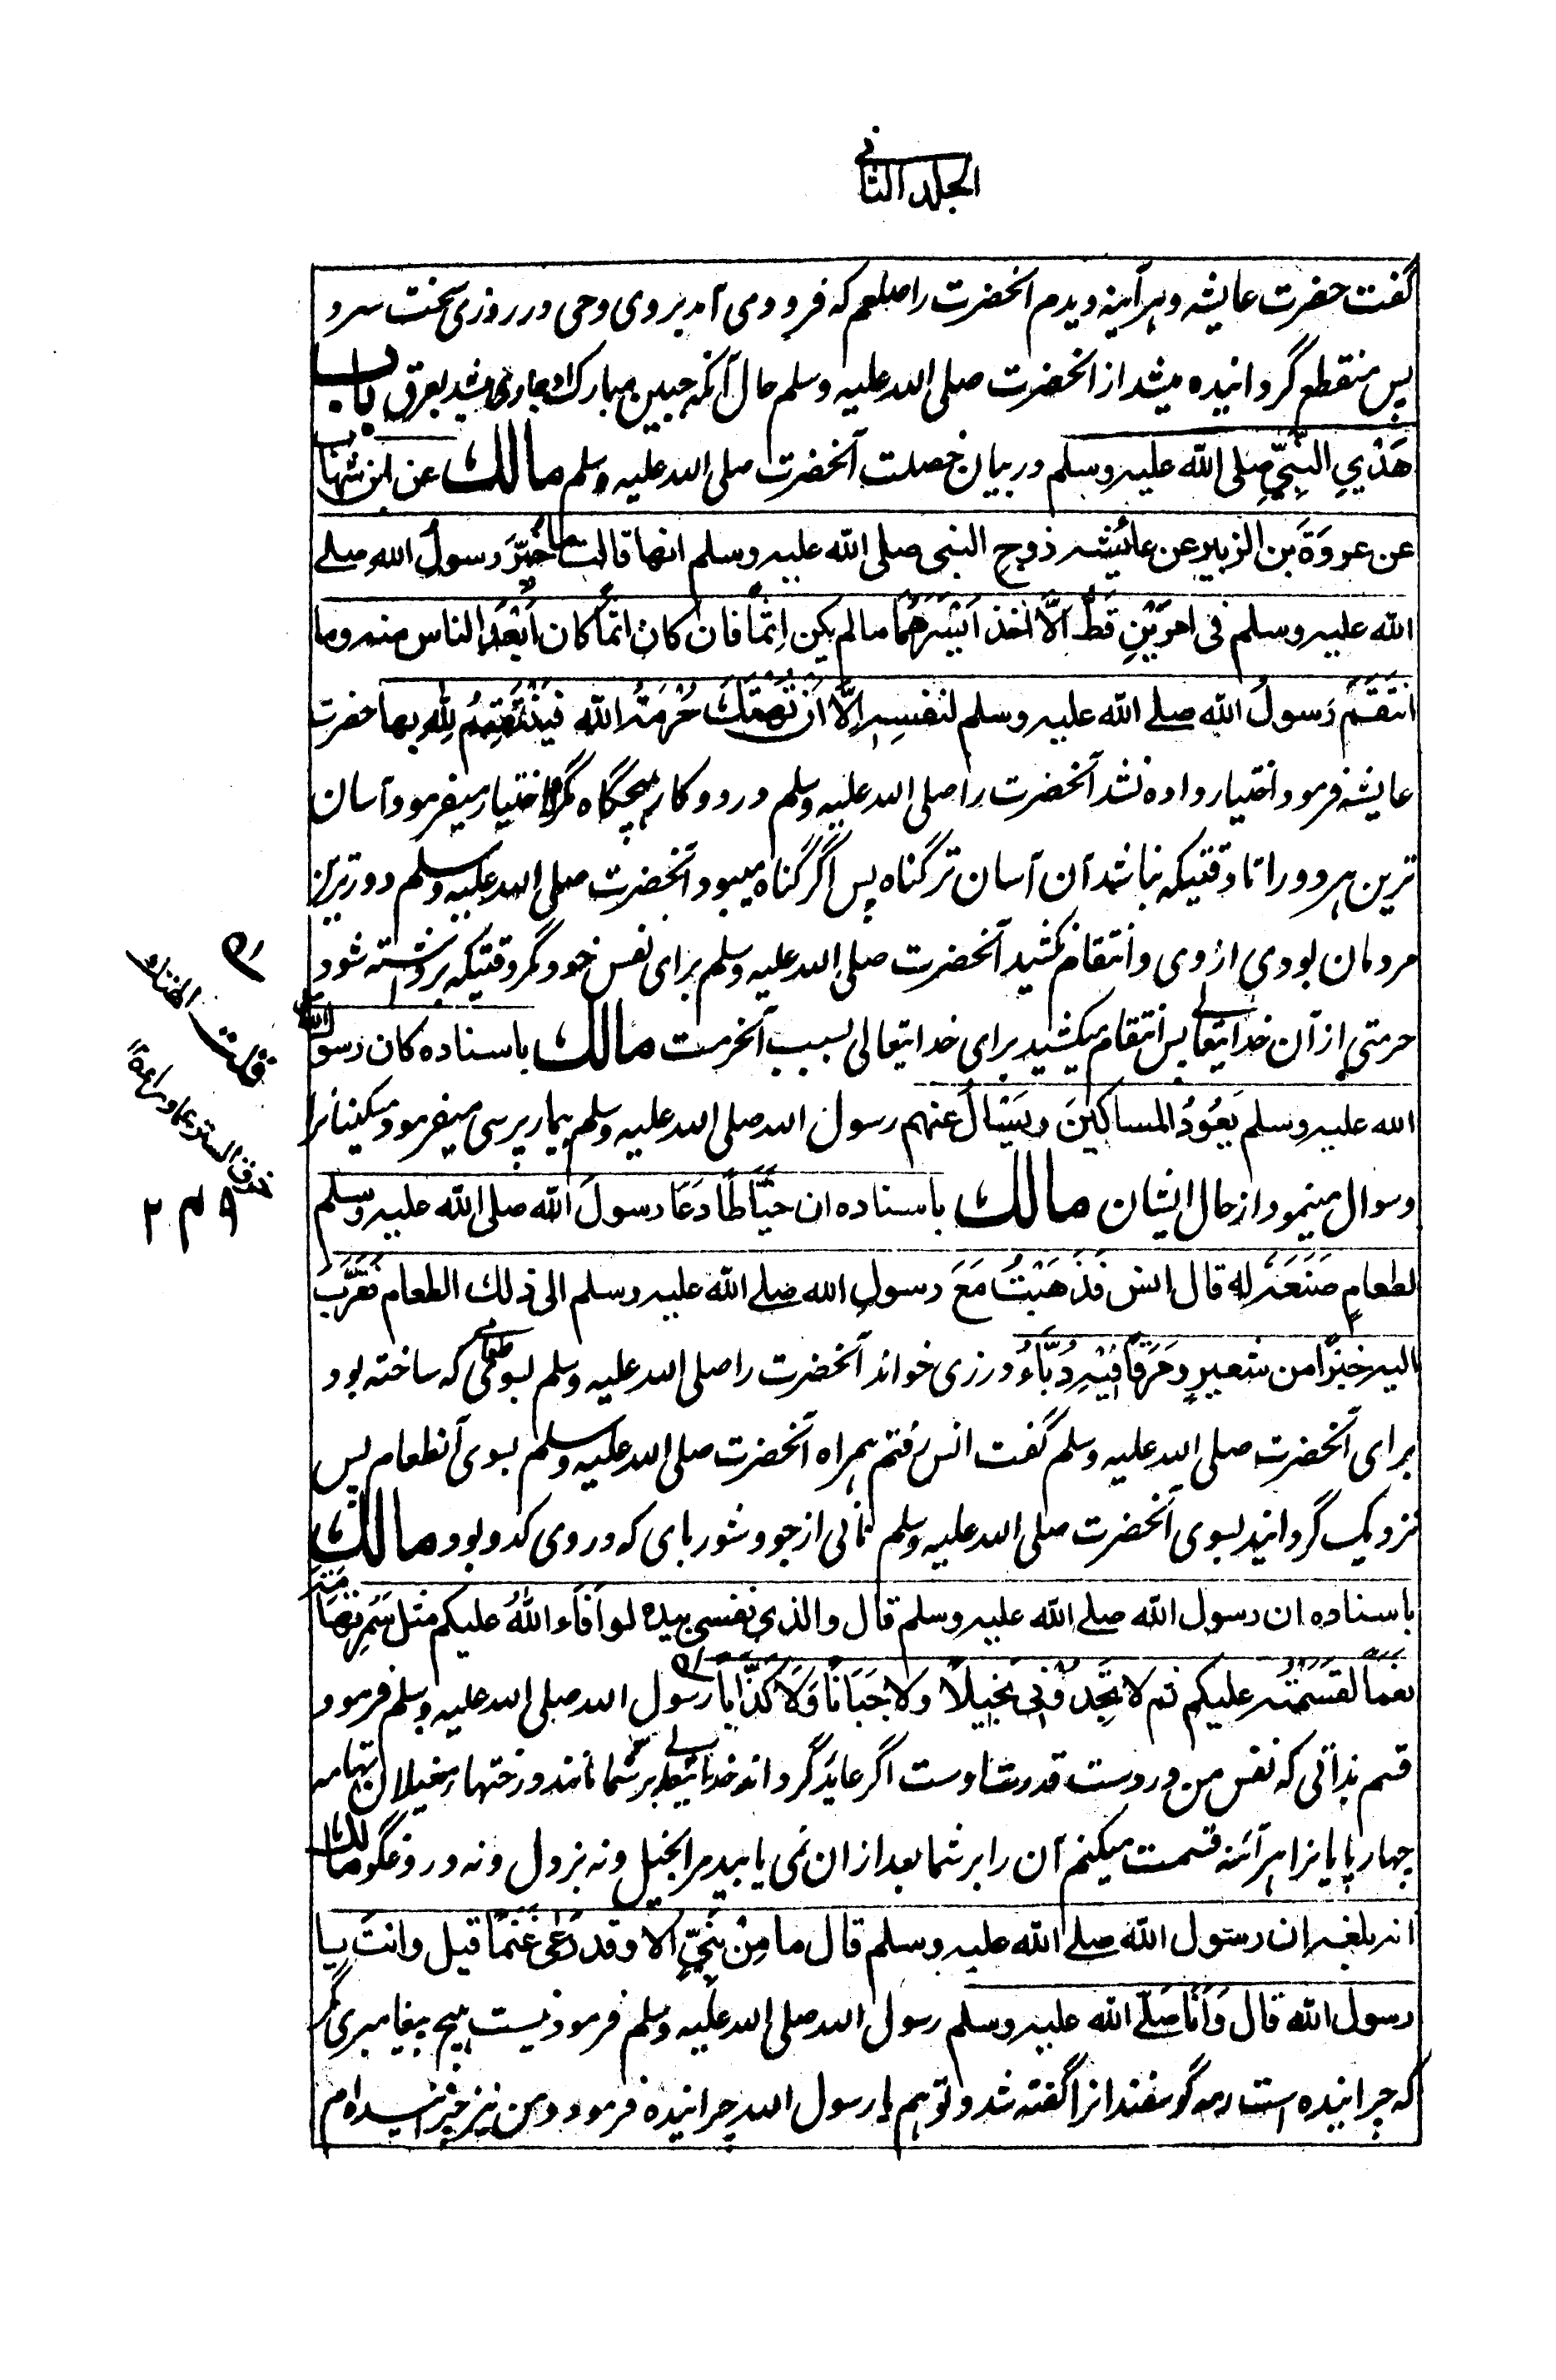 الجلد الثانی
گفت حضرت عایشه و هر آینه دیدم آنحضرت را صلعم که فرود می آمد بروی وحی در روزی سخت سرد
پس منقطع گردانیده میشد از آنحضرت صلی الله علیه وسلم حال آنکه جبین مبارک او جاری میشد بعرق باب
هَدْيِ النَّبِيِّ صلى الله عليه وسلم در بیان خصلت آنحضرت صلی الله علیه وسلم مالك عن ابن شهاب
عن عروةَ بن الزبير عن عائيشه زوج النبى صلى الله عليه وسلم انها قالت ما خُيِّرَ رسولُ الله صلے
الله عليه وسلم فى امرَيْنِ قَطُّ اِلَّا اخذ اَيْسَرَهُمَا مالم يكن اِثمًا فان كان اثمًا كان اَبْعَدَ الناس منه وما
انتَقَمَ رَسولُ الله صلے الله عليه وسلم لنفسِه اِلَّا اَن تُنْتَهَكَ حُرْمَةُ الله فيَنْتَقِمُ لِلهِ بها حضرت
عایشه فرمود اختیار داده نشد آنحضرت را صلی الله علیه وسلم در دو کار هیچگاه مگر اختیار میفرمود آسان
ترین هر دو را تا وقتیکه نباشد آن آسان تر گناه پس اگر گناه میبود آنحضرت صلی الله علیه وسلم دورترین
مردمان بودی ازوی و انتقام نکشید آنحضرت صلی الله علیه وسلم برای نفس خود مگر وقتیکه برداشته شود
حرمتی از آن خدایتعالے پس انتقام میکشید برای خدایتعالی بسبب آنحرمت مالك باسناده كان رسول الله صلى
الله عليه وسلم يَعُوْدُ المساكينَ ويَسْئالُ عنهم رسول الله صلی الله علیه وسلم بیمار پرسی میفرمود مسکینانرا
وسوال مینمود از حال ایشان مالك باسناده ان خيَّاطًا دَعَا رسولَ الله صلى الله عليه وسلم
لطعامٍ صَنَعَه له قال انس فَذَهَبْتُ مَعَ رسولِ الله صلے الله عليه وسلم الى ذلك الطعام فقَرَّبَ
اليه خبزًا من شعيرٍ ومَرَقًا فيْهِ دُبَّاءُ درزی خواند آنحضرت را صلی الله علیه وسلم بسوی طعامی که ساخته بود
برای آنحضرت صلی الله علیه وسلم گفت انس رفتم همراه آنحضرت صلی الله علیه وسلم بسوی آنطعام پس
نزدیک گردانید بسوی آنحضرت صلی الله علیه وسلم نانی از جو و شوربای که در وی کدو بود مالك
باسناده ان رسول الله صلے الله عليه وسلم قال والذي نفسى بيده لو اَفَاءَ اللهُ عليكم مثل سَمُرِ تهامَة
نَعَمًا لقسَمْتُه عليكم ثم لا تَجِدُوْنِي بَخِيلًا ولا جَبَانًا وَلَا كَذَّابًا رسول الله صلی الله علیه وسلم فرمود
قسم بذاتی که نفس من در دست قدرت اوست اگر عاید گرداند خدایتعالے بر شما مانند درختهای مغیلان تهامه
چهار پایانرا هر آئنه قسمت میکنم آن را بر شما بعد ازان نمی یابید مرا بخیل و نه بزدل و نه دروغگو مالك
انه بلغه ان رسول الله صلے الله عليه وسلم قال ما مِنْ نَبِيٍّ الا وقد رَعٰى غَنَمًا قيل وانتَ يا
رسول الله قال وَاَنَا صَلّے الله عليه وسلم رسول الله صلی الله علیه وسلم فرمود نیست هیچ پیغامبری مگر
که چرانیده است رمه گوسفندانرا گفته شد و تو هم یا رسول الله چرانیده فرمود و من نیز چرانیده ام